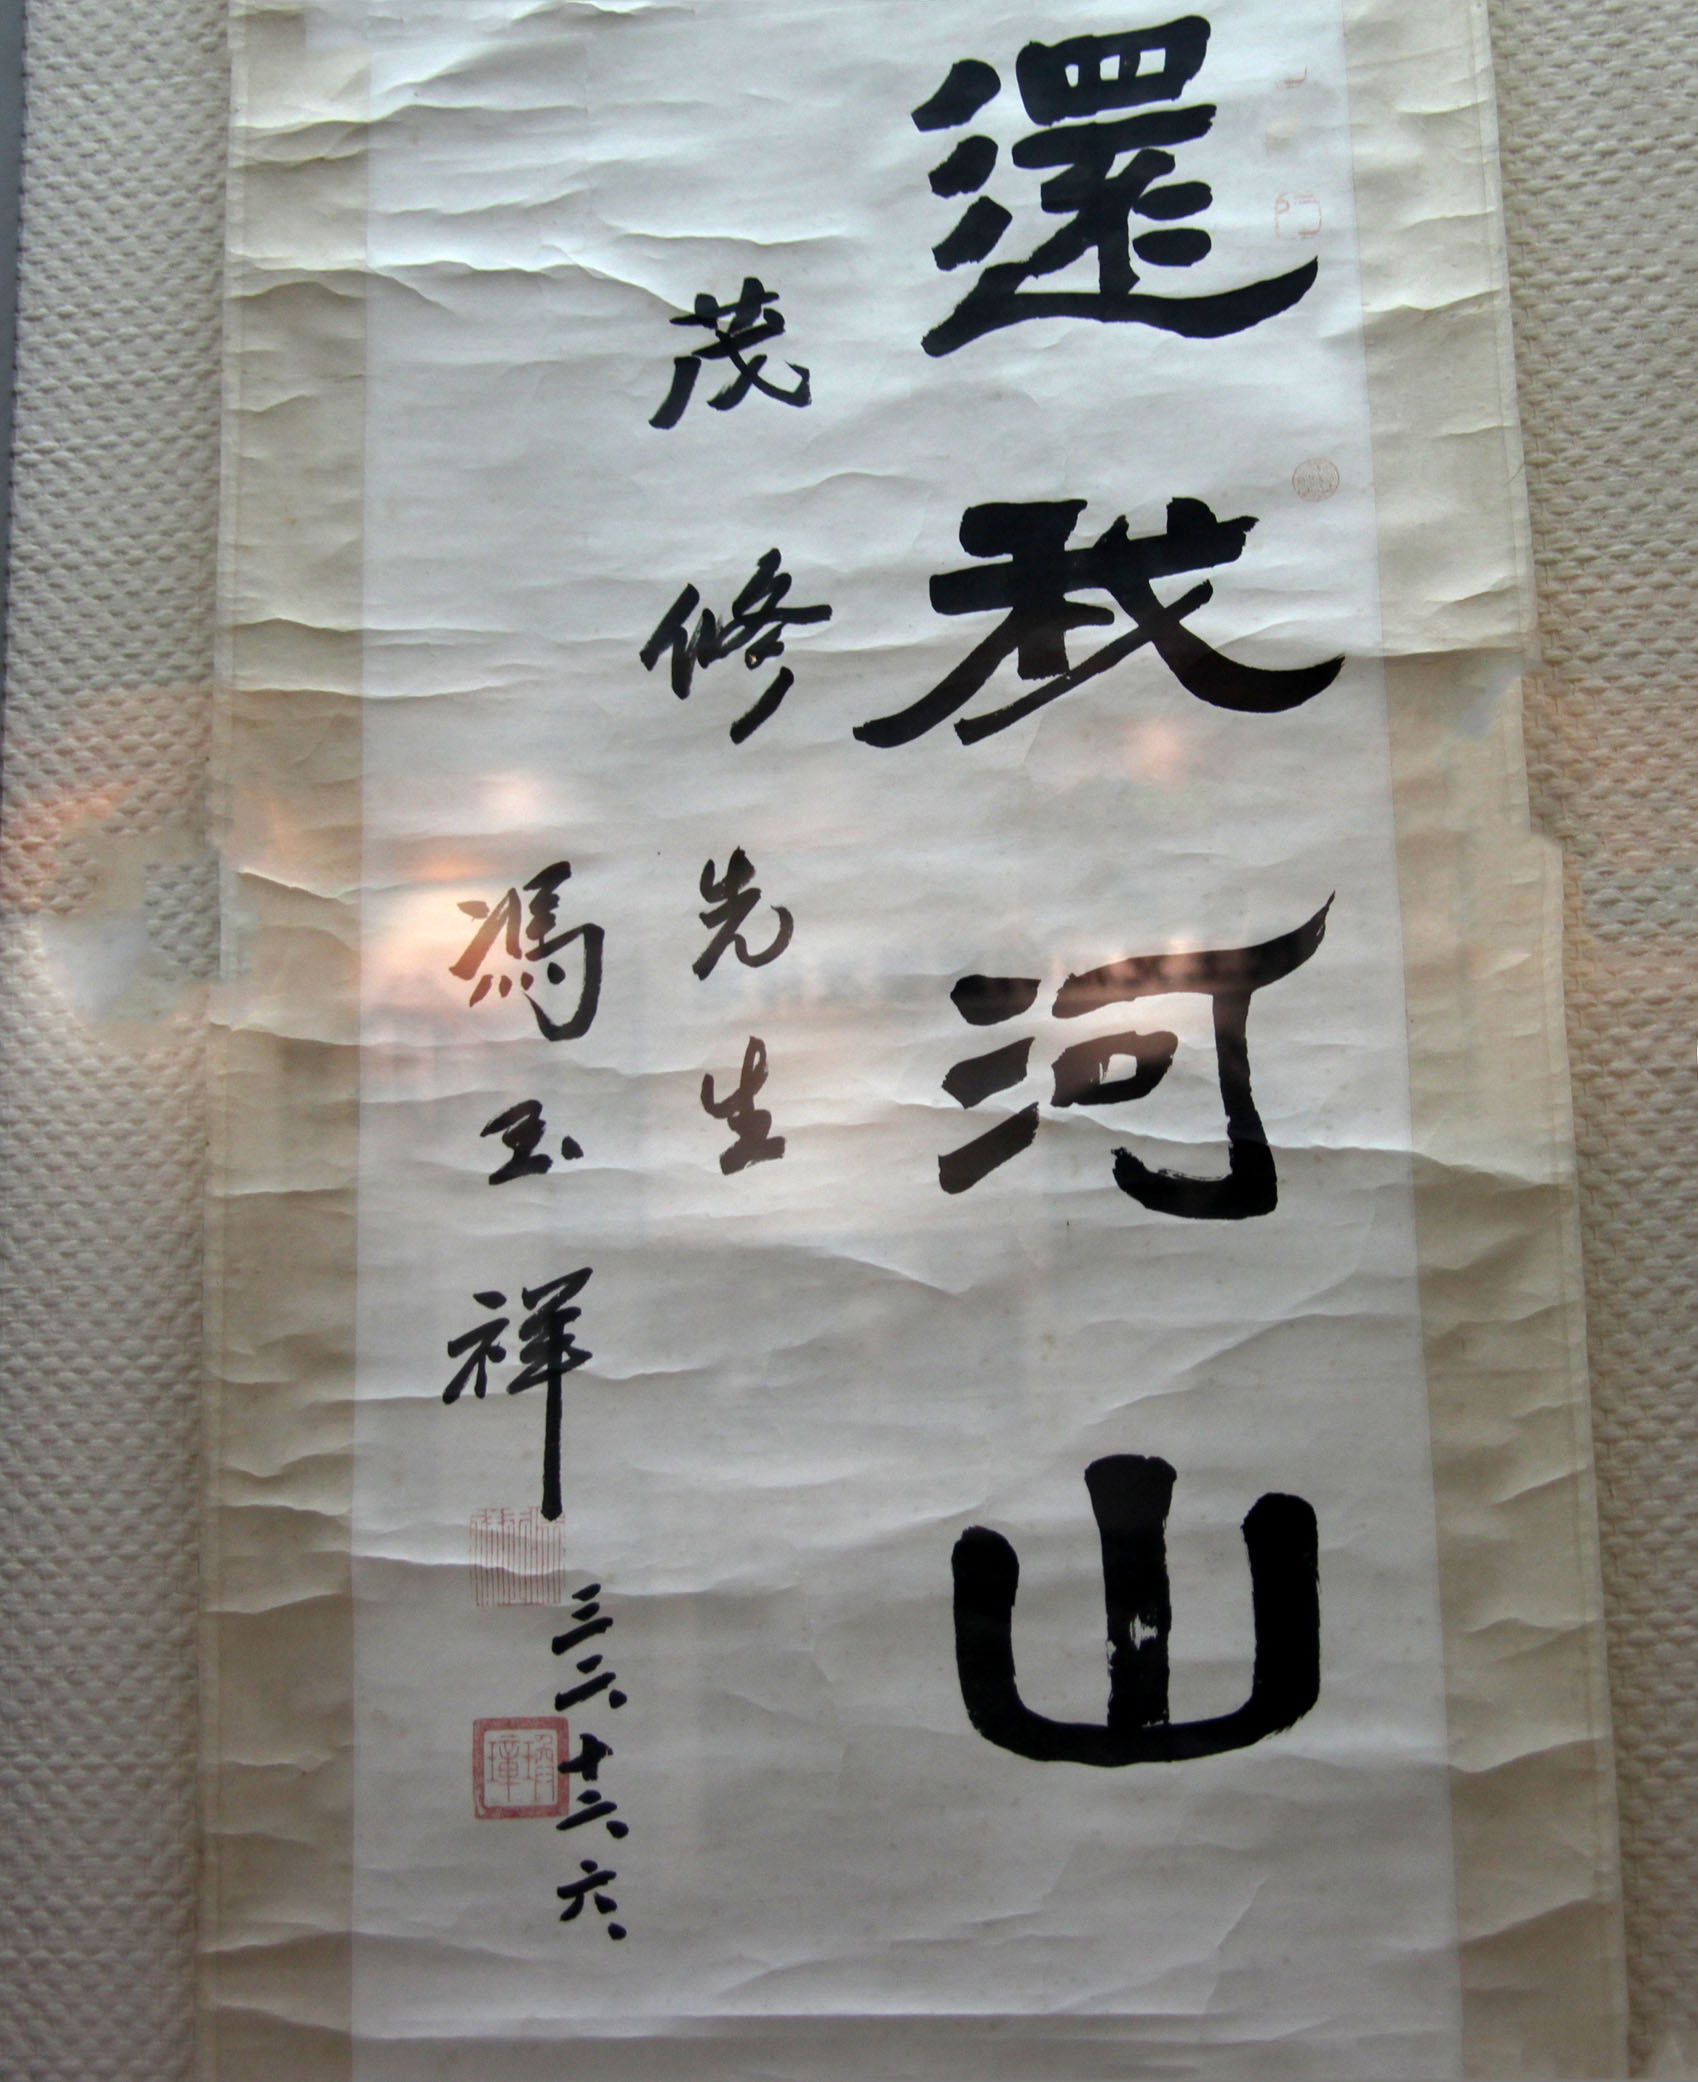 還我河山
茂修先生
馮玉祥
三二、十二、六、